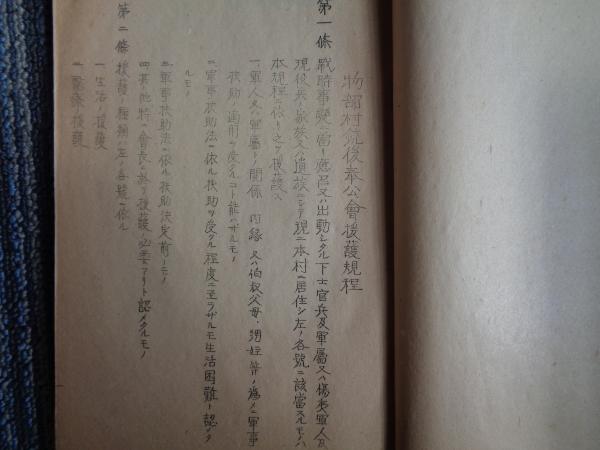 物部村銃後奉公會援護規程
第一條 戰時事變ニ當リ應召又ハ出動シタル下士官兵及軍屬又ハ傷痍軍人及
現役兵ノ家族又ハ遺族ニシテ現ニ本村ニ居住シ左ノ各號ニ該當スルモノハ
本規程ニ依リ之ヲ援護ス
一、軍人又ハ軍屬トノ關係 内縁 又ハ伯叔父母、甥姪等ノ為メニ軍事
扶助ノ適用ヲ受クルコト能ハザルモノ
二、軍事扶助法ニ依ル扶助ヲ受クル程度ニ至ラザルモ生活困難ト認メタ
ルモノ
三、軍事扶助法ニ依ル扶助決定前ノモノ
四、其ノ他特ニ會長ニ於テ援護ノ必要アリト認メタルモノ
第二條 援護ノ種類ハ左ノ各號ニ依ル
一、生活ノ援護
二、醫療援護